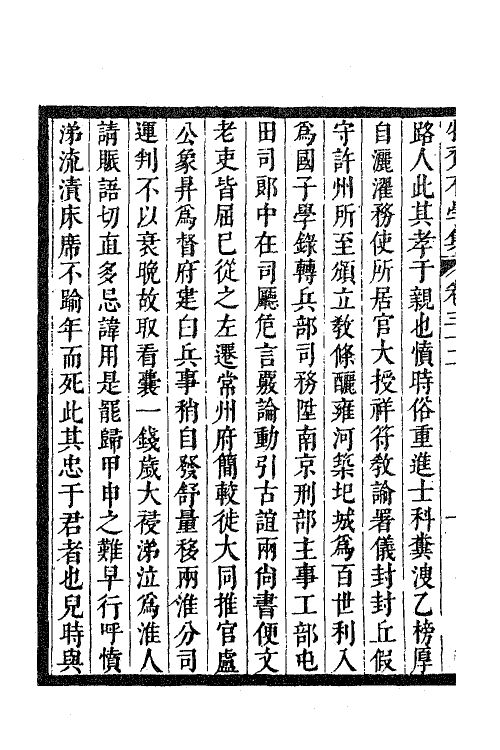 路人此其孝于親也憤時俗重進士科糞溲乙榜厚
自灑濯務使所居官大授祥符敎諭署儀封封丘假
守許州所至頒立敎條釃雍河築圮城爲百世利入
爲國子學錄轉兵部司務陞南京刑部主事工部屯
田司郎中在司廳危言嚴論動引古誼兩尙書便文
老吏皆屈已從之左遷常州府簡較徙大同推官盧
公象昇爲督府建白兵事稍自發舒量移兩淮分司
運判不以衰晚故取看囊一錢歲大祲涕泣爲淮人
請賑語切直多忌諱用是罷歸甲申之難早行呼憤
涕流漬床席不踰年而死此其忠于君者也兒時與